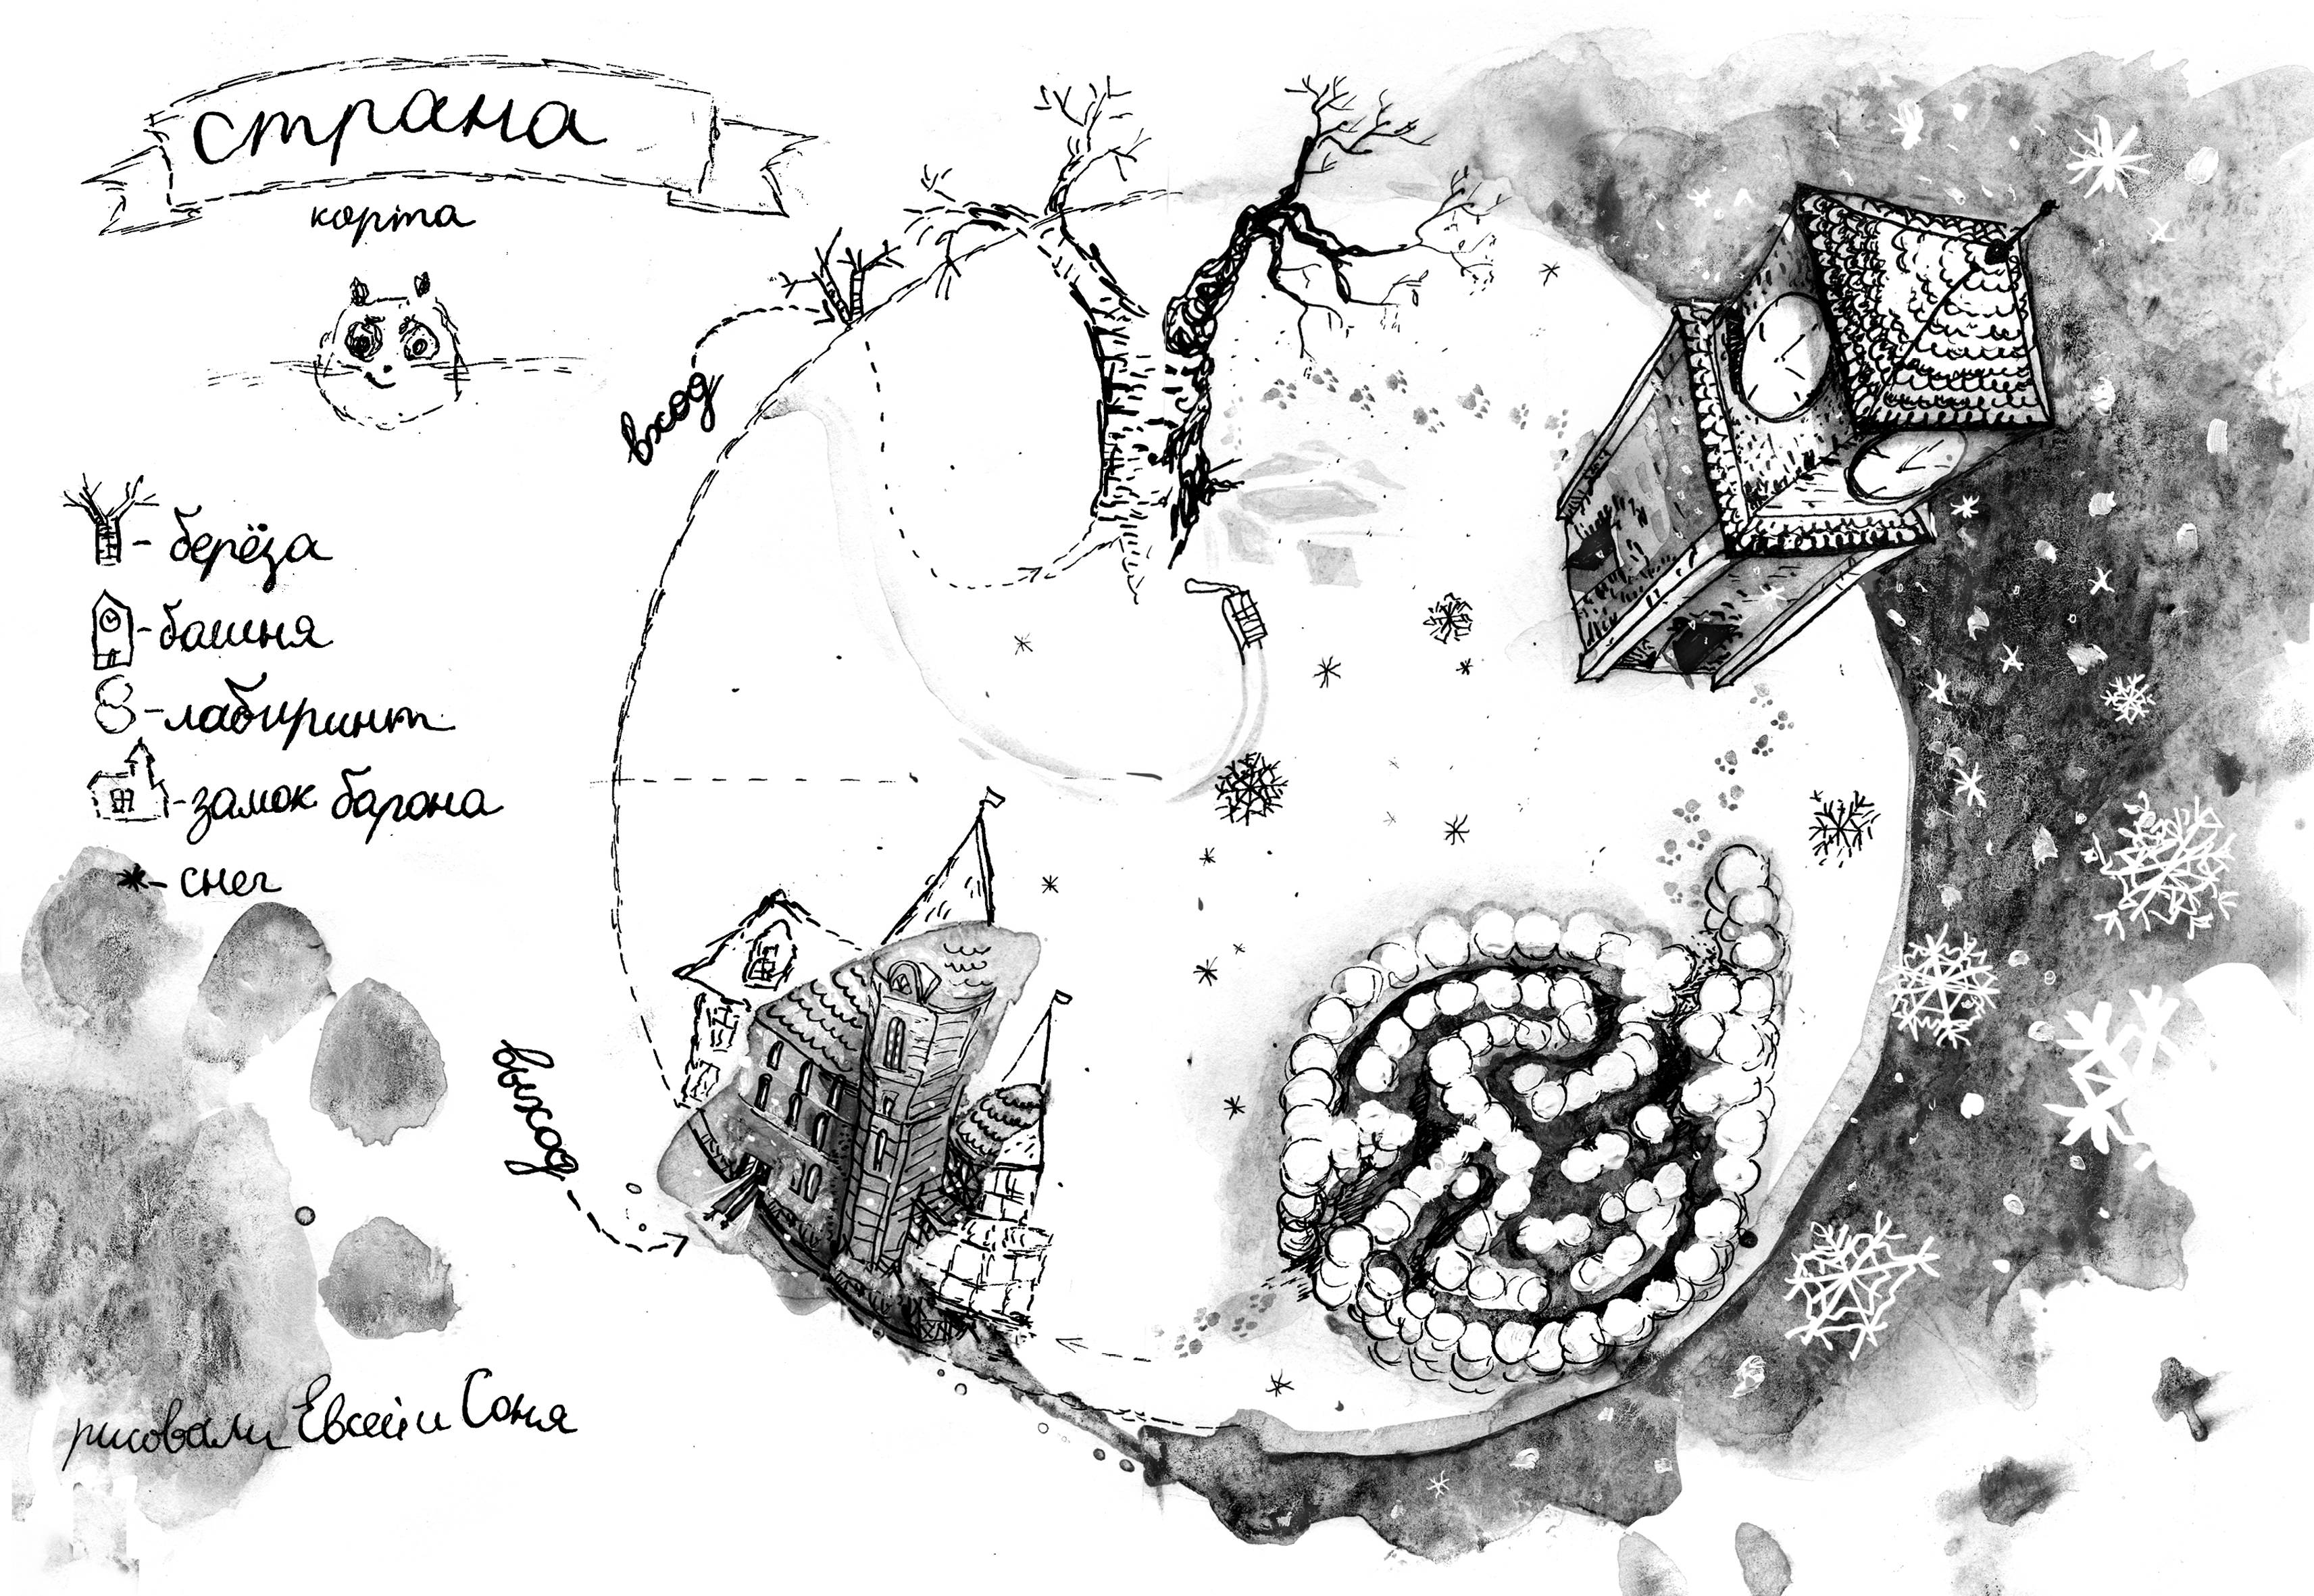 страна
карта
вход
- берёза
- башня
- лабиринт
- замок барона
- снег
выход
рисовали Евсей и Соня